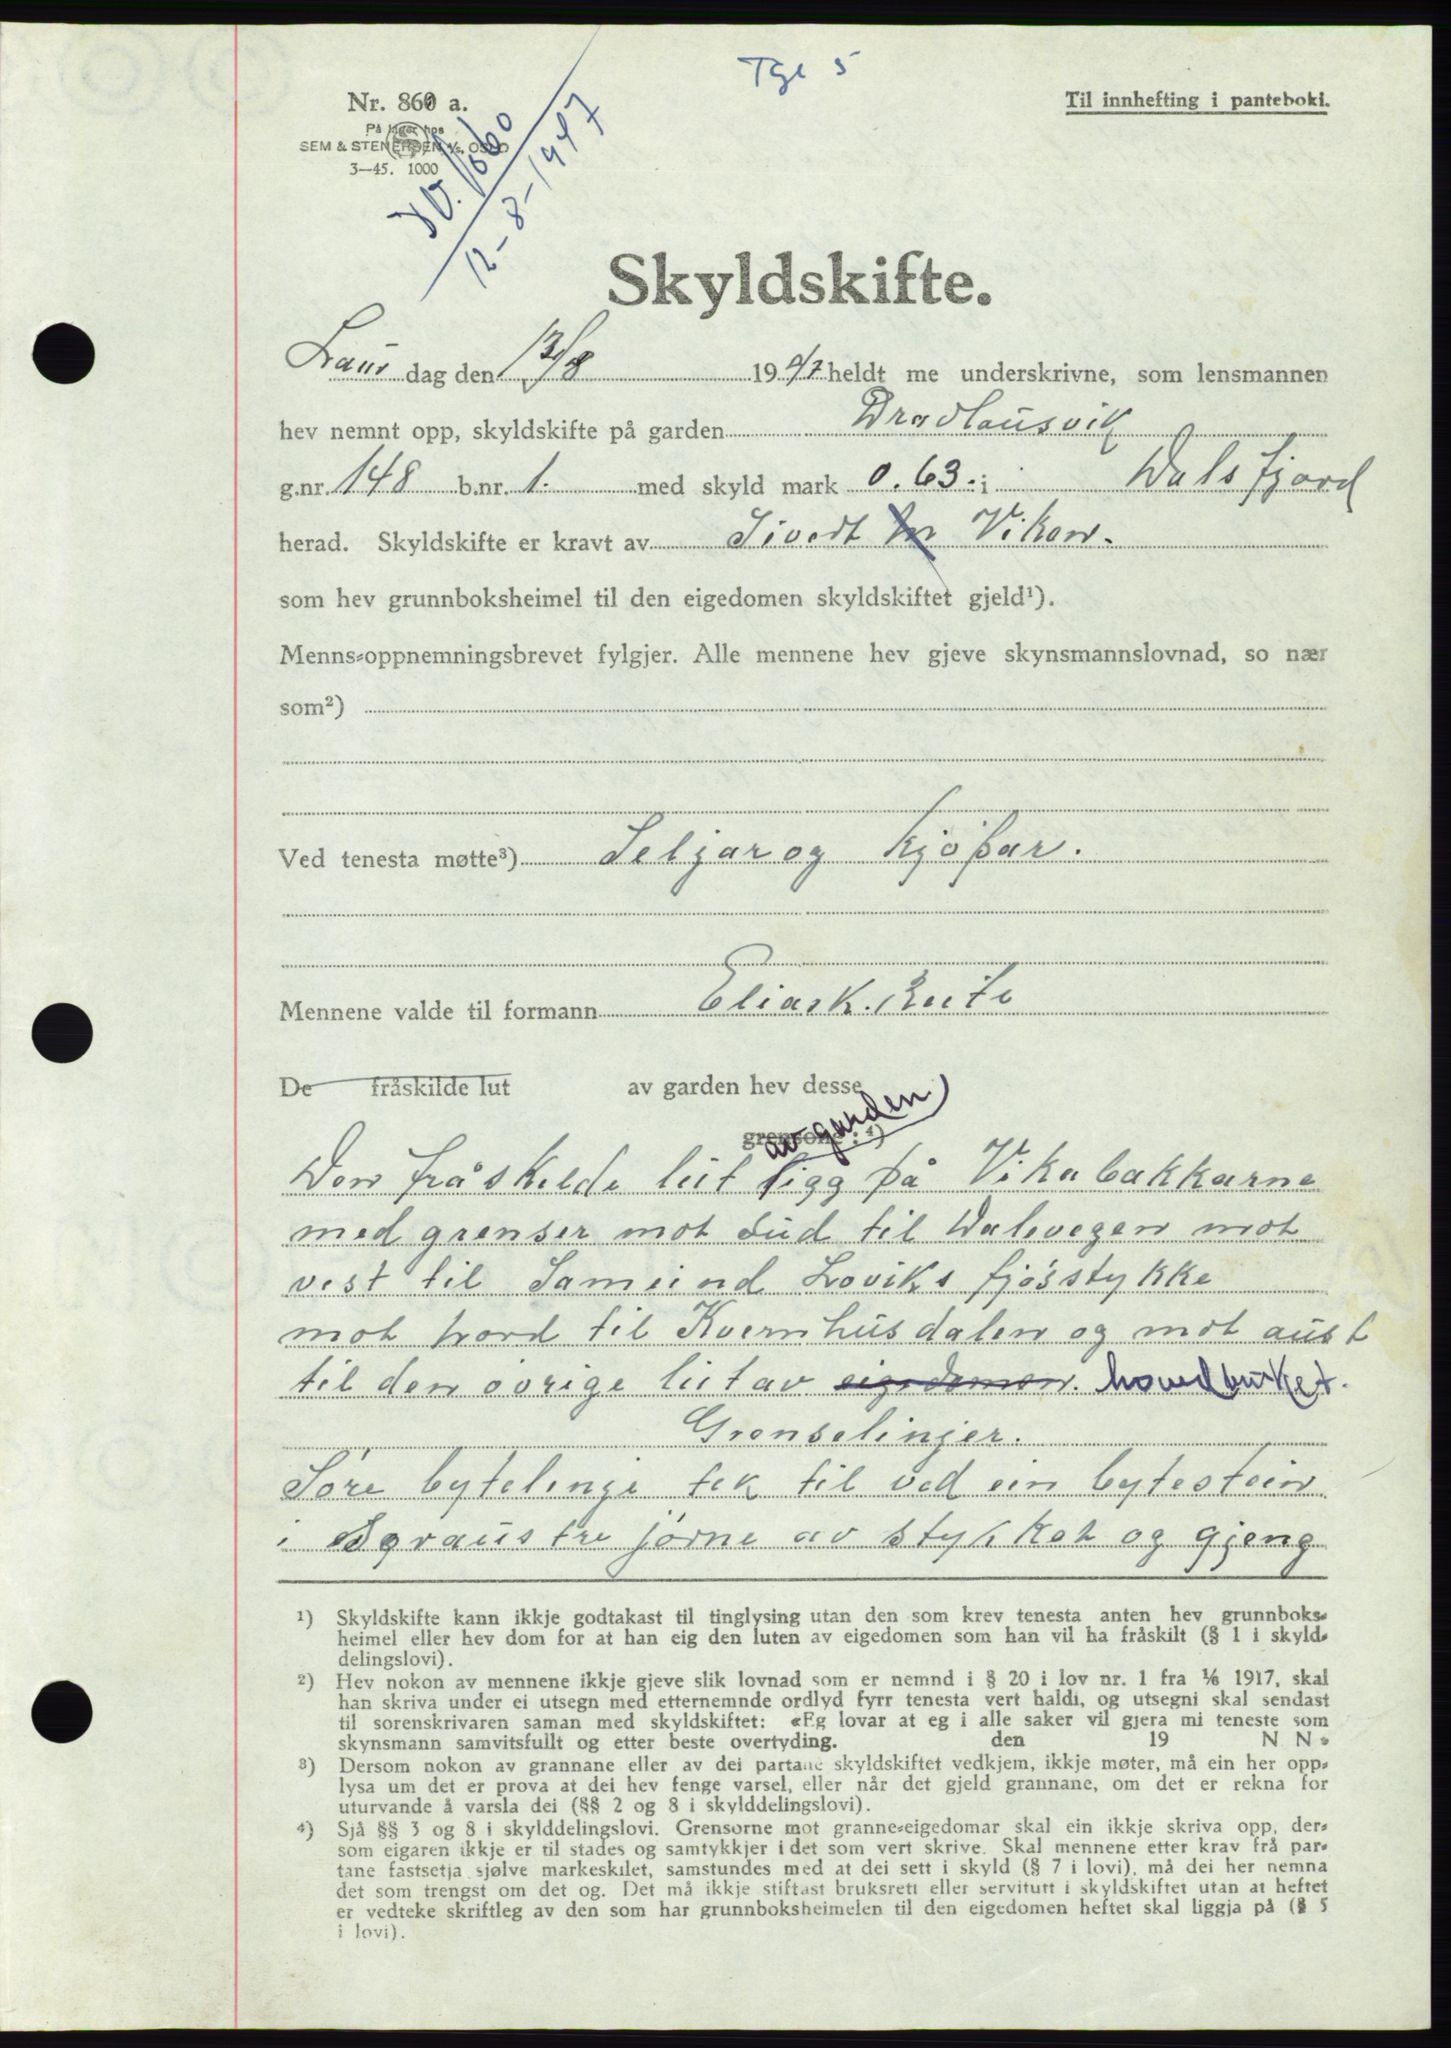 Tgl 5
Nr. 860 a.
På lager hos
SEM & STENERSEN A/S, OSLO
3—45. 1000
1060
12-8-1947
Til innhefting i panteboki.
Skyldskifte.
Laur dag den 1947 heldt me underskrivne, som lensmannen
hev nemnt opp, skyldskifte på garden Dravlausvik
g.nr. 148 b.nr. 1. med skyld mark 0.63. i Dalsfjord
herad. Skyldskifte er kravt av Sivert Viken.
som hev grunnboksheimel til den eigedomen skyldskiftet gjeld¹).
Menns-oppnemningsbrevet fylgjer. Alle mennene hev gjeve skynsmannslovnad, so nær
som²)
Ved tenesta møtte³) Seljar og kjøpar.
Mennene valde til formann Elias K.
De fråskilde lut av garden hev desse
grensone:⁴)
av garden
Den fråskilde lut ligg på Vikabakkarne
med grenser mot sud til Dalevegen mot
vest til Sameind Loviks fjøsstykke
mot nord til Kvernhusdalen og mot aust
til den øvrige lut av eigedomen. hovedbruket.
Grenselinjer.
Søre bytelinje tek til ved ein bytestein
i søraustre jørne av stykket og gjeng
¹) Skyldskifte kann ikkje godtakast til tinglysing utan den som krev tenesta anten hev grunnboks-
heimel eller hev dom for at han eig den luten av eigedomen som han vil ha fråskilt (§ 1 i skyld-
delingslovi).
²) Hev nokon av mennene ikkje gjeve slik lovnad som er nemnd i § 20 i lov nr. 1 fra 1/6 1917, skal
han skriva under ei utsegn med etternemnde ordlyd fyrr tenesta vert haldi, og utsegni skal sendast
til sorenskrivaren saman med skyldskiftet: «Eg lovar at eg i alle saker vil gjera mi teneste som
skynsmann samvitsfullt og etter beste overtyding. den 19 N N»
³) Dersom nokon av grannane eller av dei partane skyldskiftet vedkjem, ikkje møter, må ein her opp-
lysa um det er prova at dei hev fenge varsel, eller når det gjeld grannane, om det er rekna for
uturvande å varsla dei (§§ 2 og 8 i skylddelingslovi).
⁴) Sjå §§ 3 og 8 i skylddelingslovi. Grensorne mot granne-eigedomar skal ein ikkje skriva opp, der-
som eigaren ikkje er til stades og samtykkjer i det som vert skrive. Skal mennene etter krav frå par-
tane fastsetja sjølve markeskilet, samstundes med at dei sett i skyld (§ 7 i lovi), må dei her nemna
det som trengst om det og. Det må ikkje stiftast bruksrett eller servitutt i skyldskiftet utan at heftet
er vedteke skriftleg av den som har grunnboksheimelen til den eigedomen heftet skal liggja på (§ 5
i lovi).